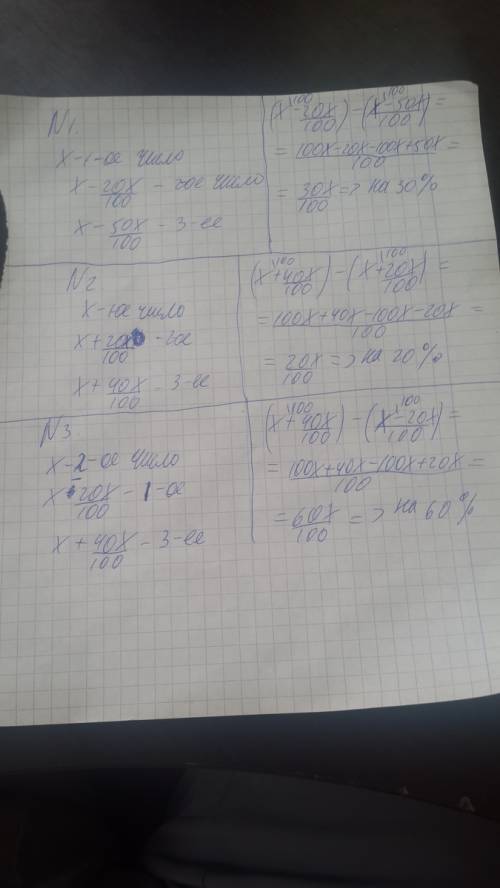 N1.
x-1-ое число
x - 20x/100 - 2ое число
x - 50x/100 - 3-ее
(x^100 - 20x/100) - (x^100 - 50x/100) =
= 100x-20x-100x+50x/100 =
= 30x/100 => на 30%
N2
x-1ое число
x + 20x/100 - 2ое
x + 40x/100 - 3-ее
(x^100 + 40x/100) - (x^100 + 20x/100) =
= 100x+40x-100x-20x/100 =
= 20x/100 => на 20%
N3
x-2-ое число
x - 20x/100 - 1-ое
x + 40x/100 - 3-ее
(x^100 + 40x/100) - (x^100 - 20x/100) =
= 100x+40x-100x+20x/100 =
= 60x/100 => на 60%